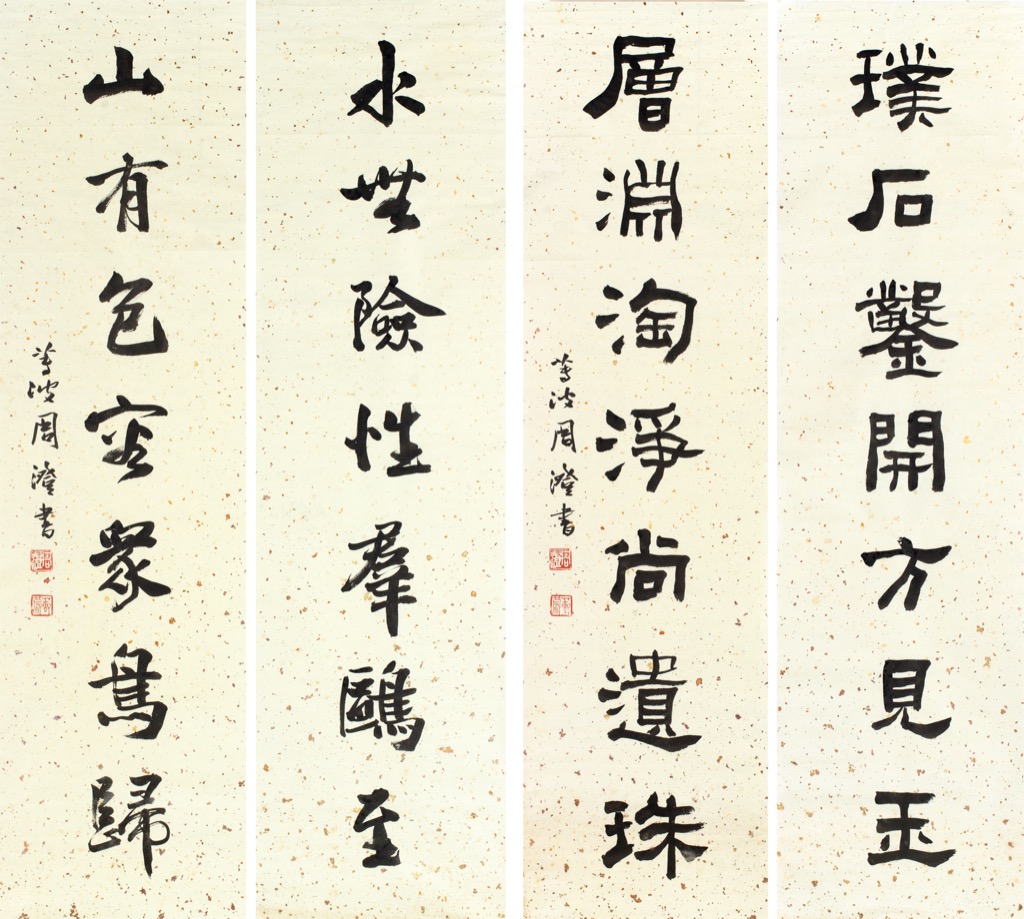 璞石鑿開方見玉
層淵淘淨尚遺珠
蓴波周澄書
水無險性羣鷗至
山有包容眾鳥歸
蓴波周澄書